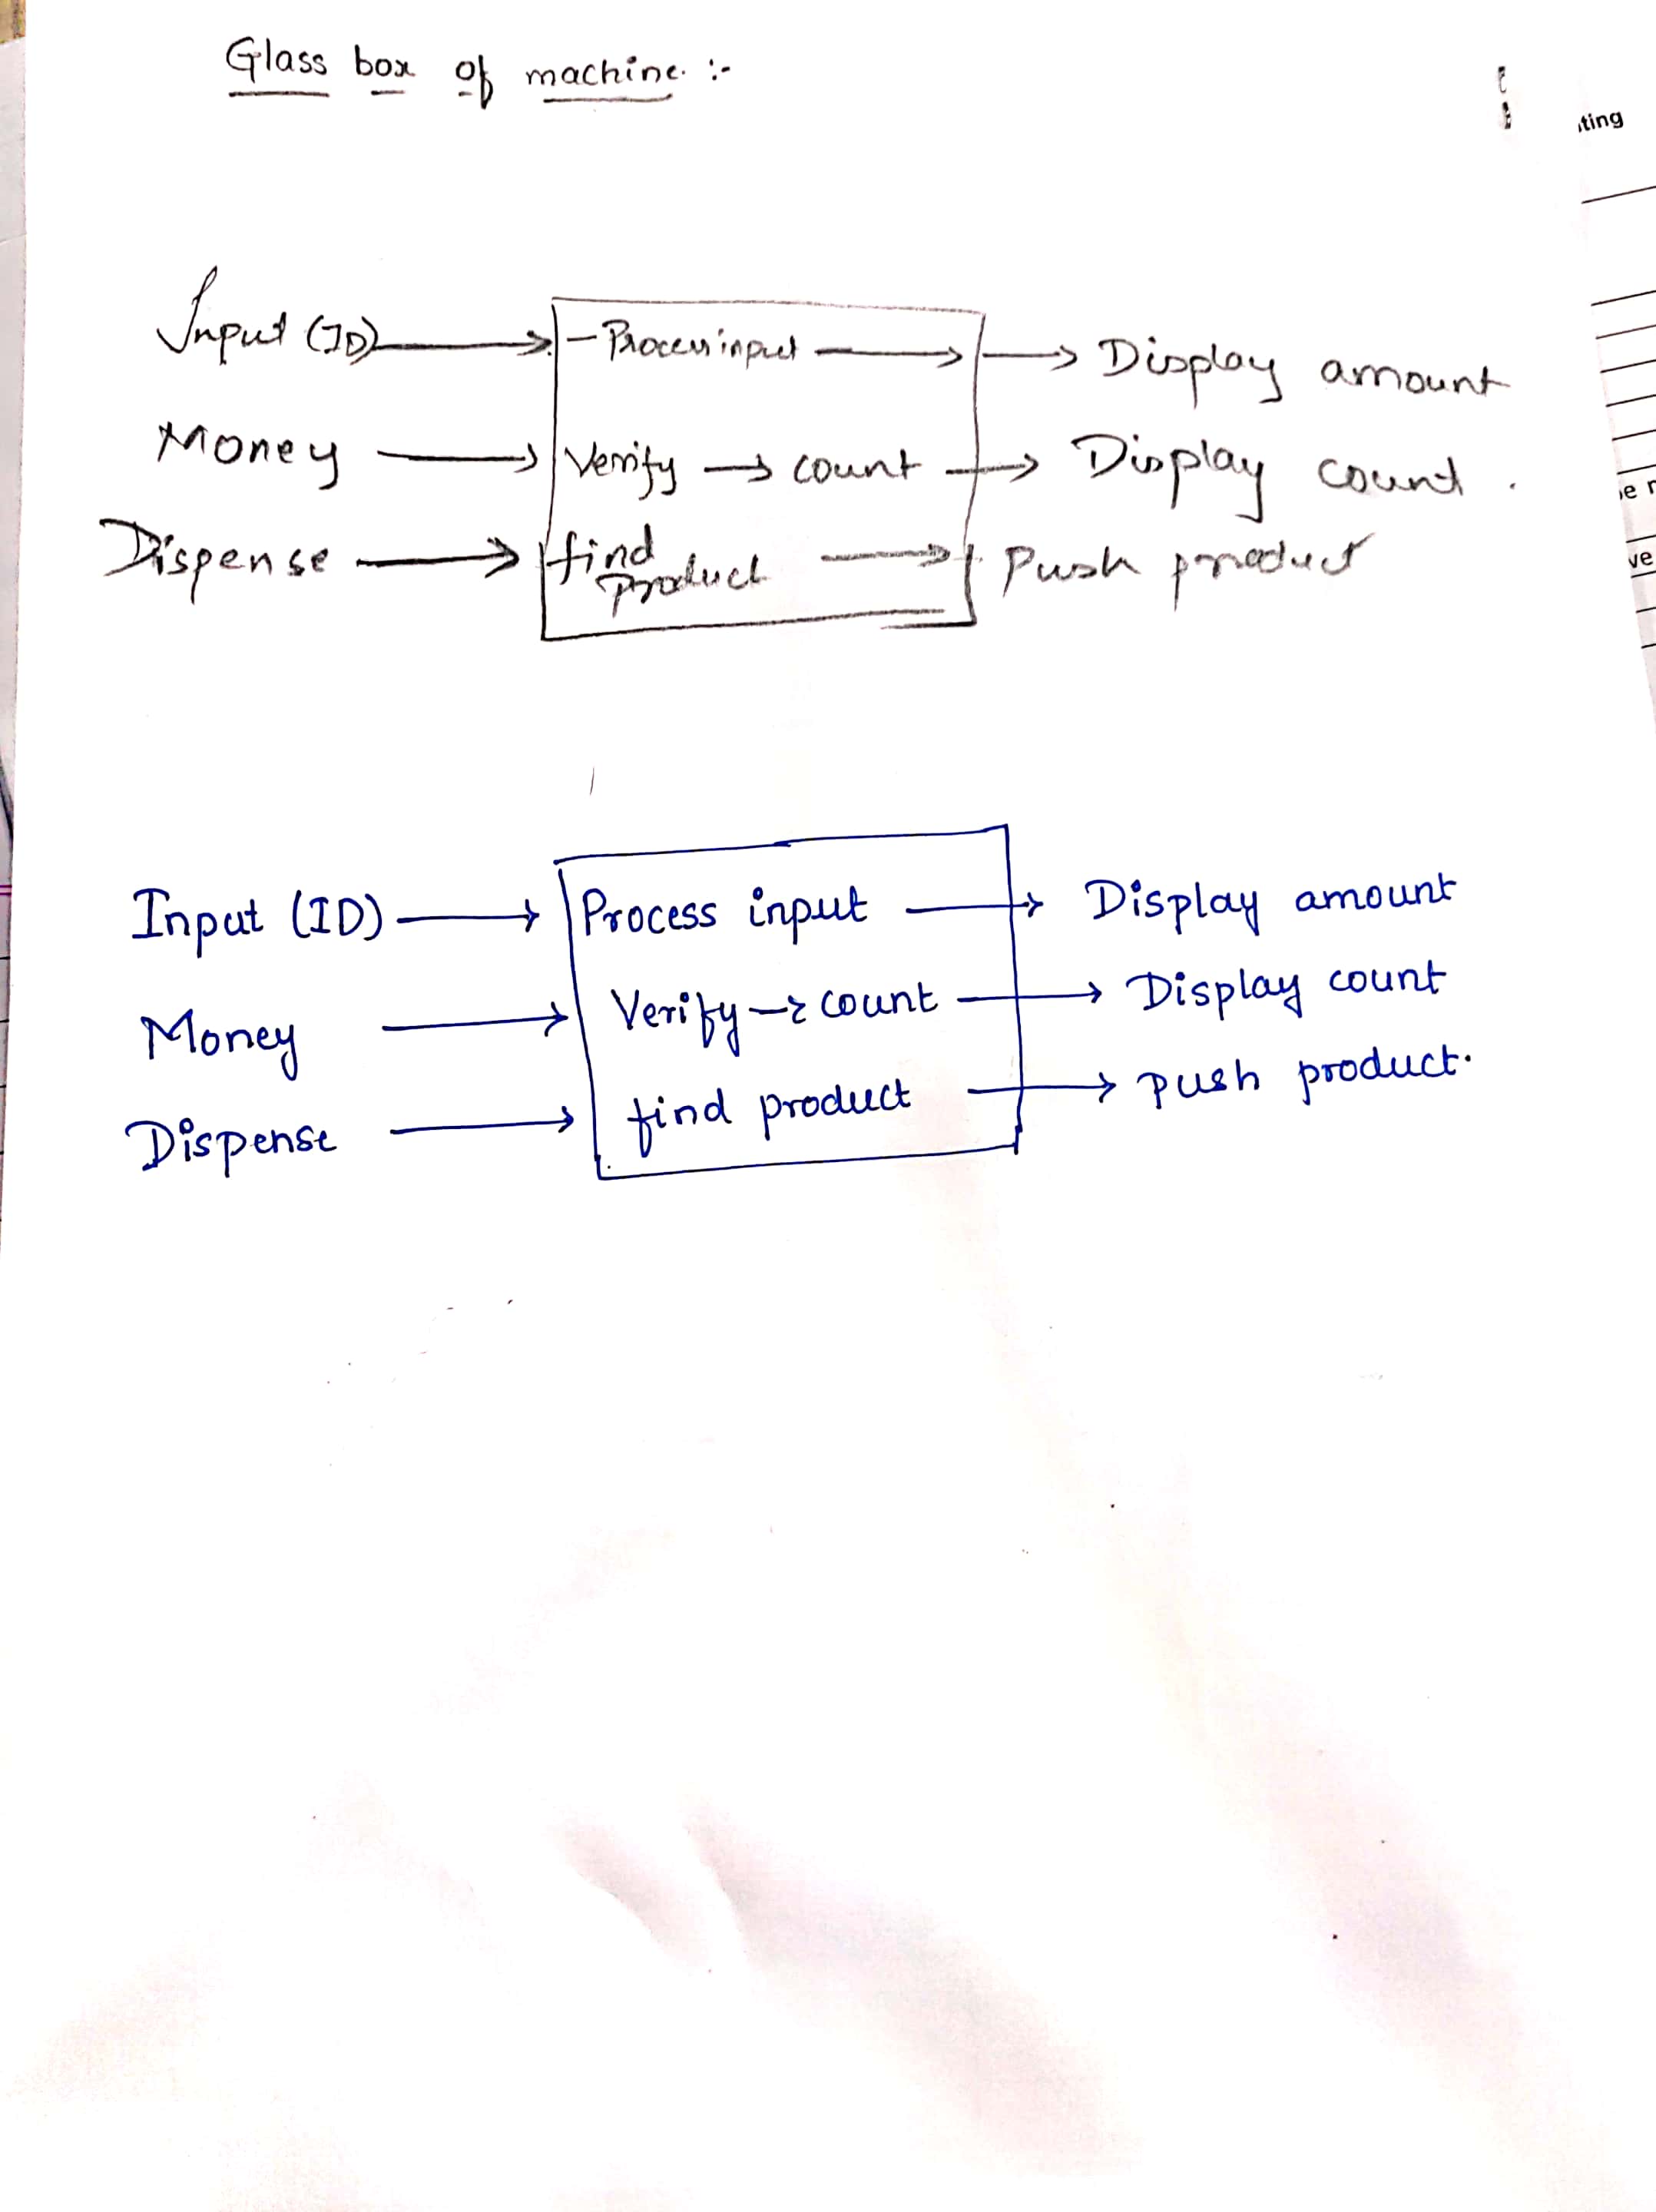 Glass box of machine :-
ting
Input (ID) → - Process input → → Display amount
Money → Verify → count → Display count .
e r
Dispense → find product → Push product
ve
Input (ID) → Process input → Display amount
Money → Verify → count → Display count
Dispense → find product → push product.